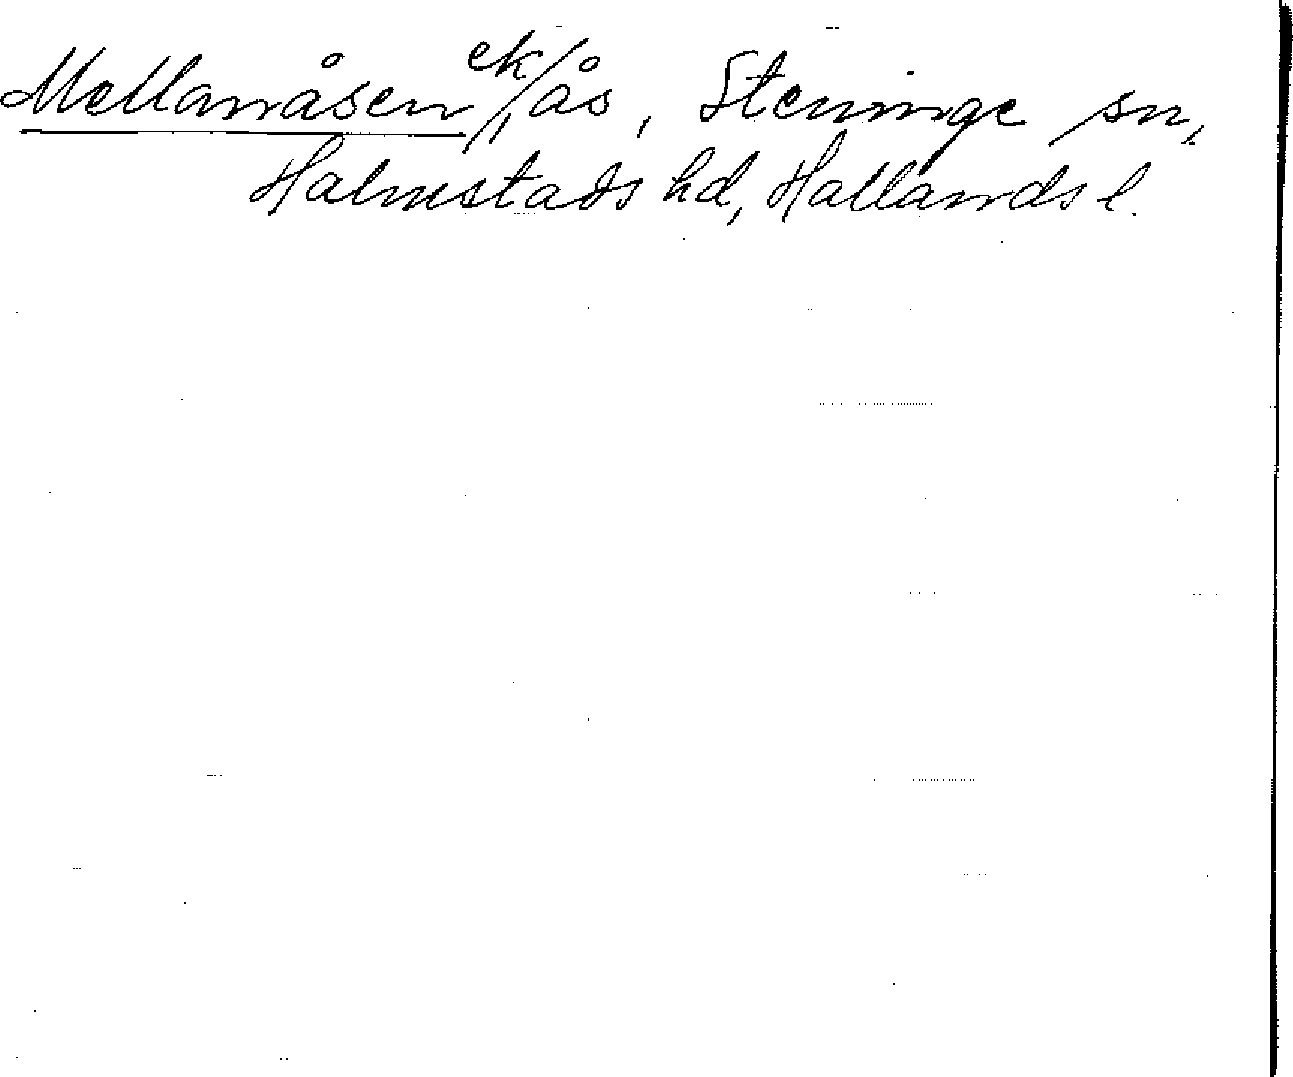 Mellanåsen, ek/ås, Steninge sn,
Halmstads hd, Hallands l.